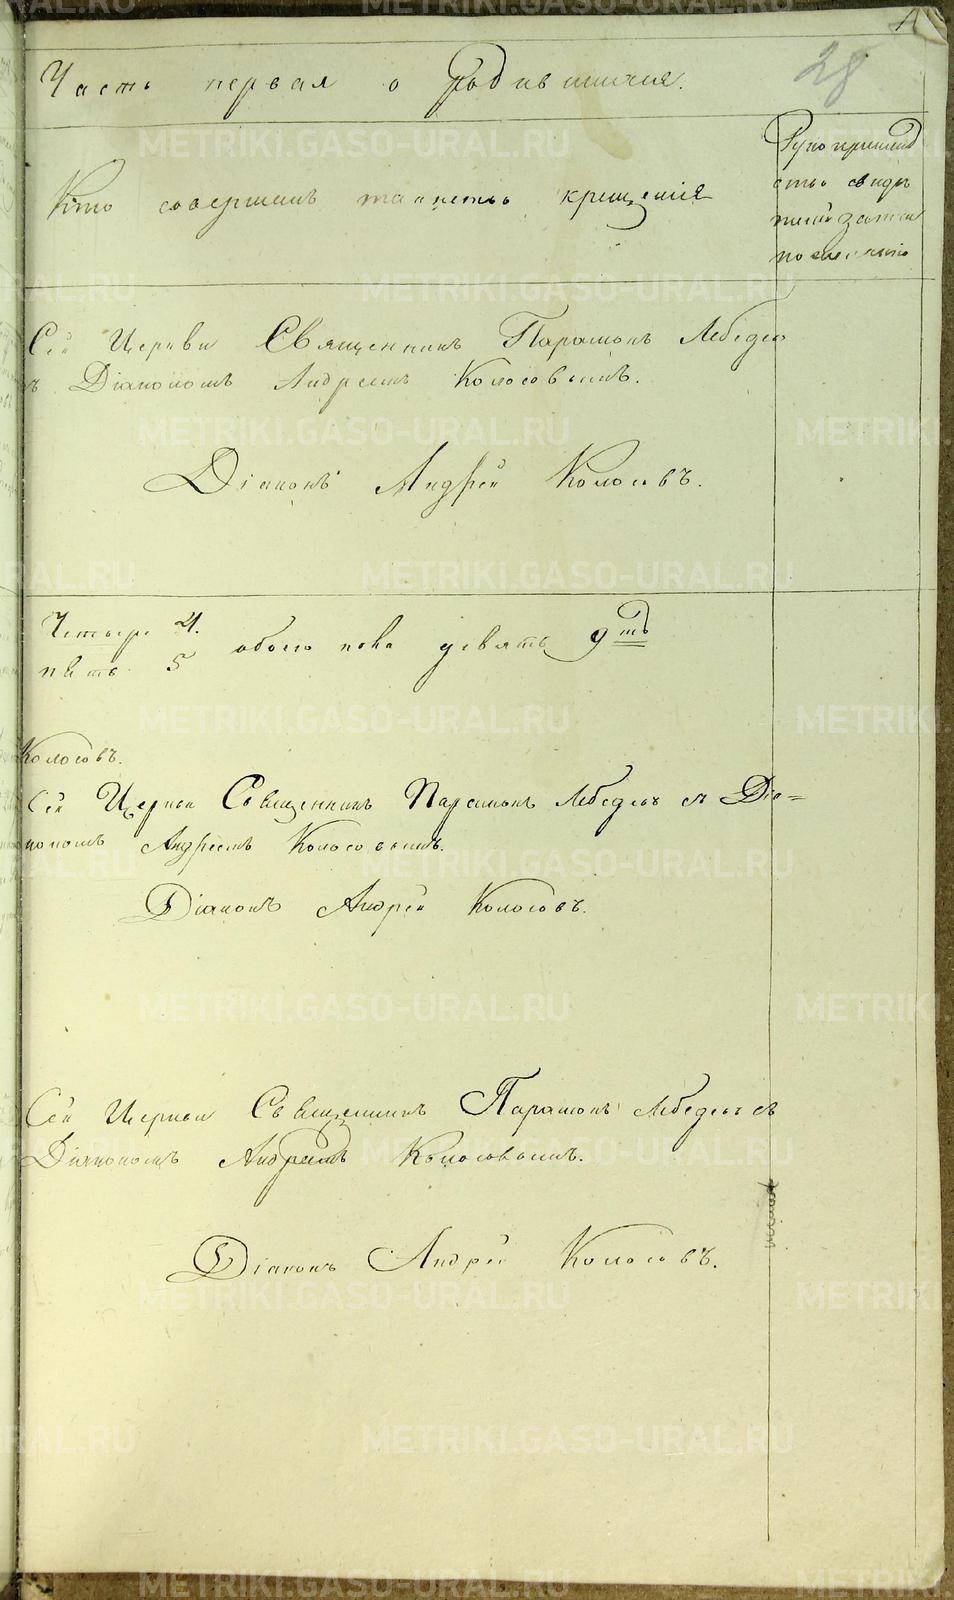 28
Часть первая о родившихся.
Кто совершалъ таинство крещенія
Рукоприклад
ство свидѣ
телей записи
по желанію
Сей Церкви Священникъ Парамонъ Лебедев
ъ Діакономъ Андреемъ Колосовымъ.
Діаконъ Андрей Колосовъ.
Четыре 4.
пять 5
обоего пола девять 9ть
Колосовъ.
Сей Церкви Священникъ Парамонъ Лебедевъ съ Діа=
кономъ Андреемъ Колосовымъ.
Діаконъ Андрей Колосовъ.
Сей Церкви Священникъ Парамонъ Лебедевъ съ
Діакономъ Андреемъ Колосовымъ.
Діаконъ Андрей Колосовъ.
METRIKI.GASO-URAL.RU